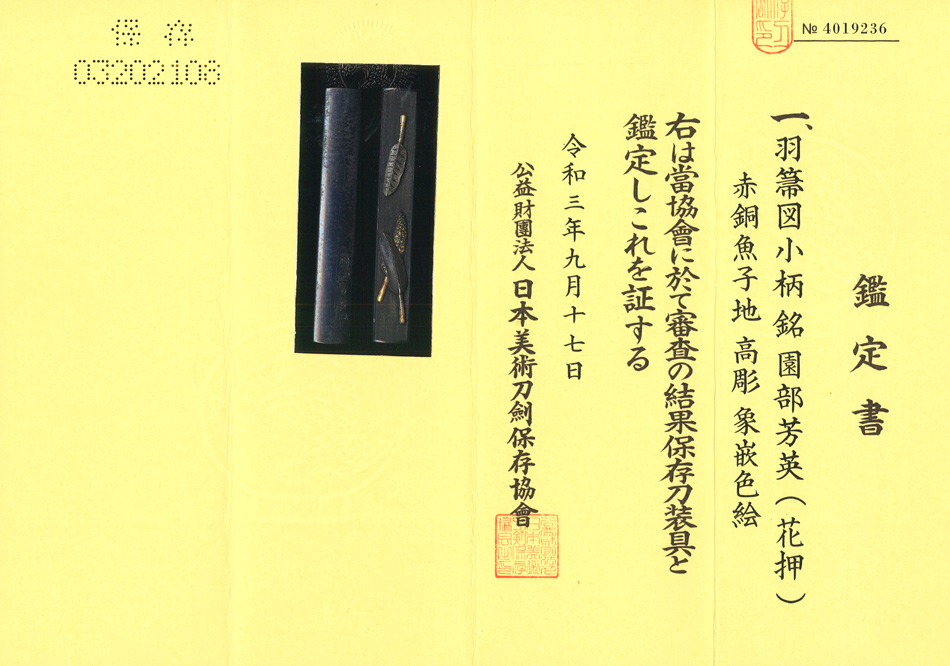 № 4019236
鑑定書
一、羽箒図小柄 銘 園部芳英(花押)
赤銅魚子地 高彫 象嵌色絵
右は當協會に於て審査の結果保存刀装具と
鑑定しこれを証する
令和三年九月十七日
公益財團法人 日本美術刀劍保存協會
保存
03202108